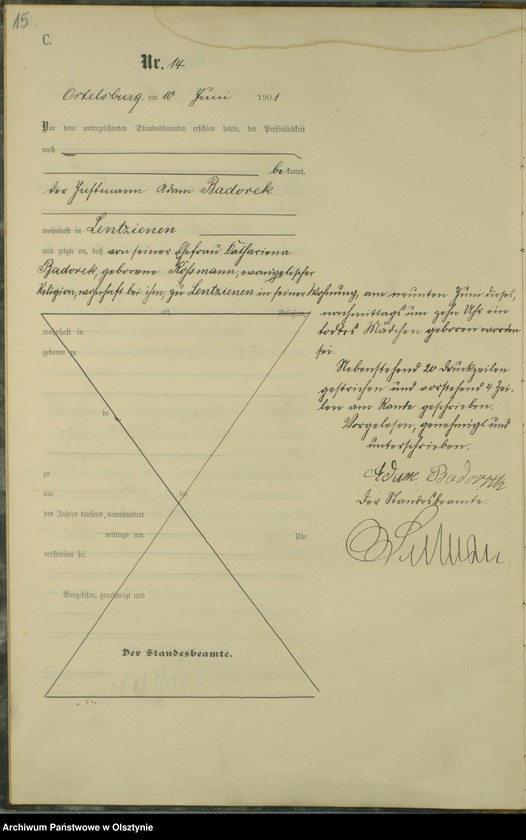 15
C.
Nr. 14
Ortelsburg, am 10. Juni 1901.
Vor dem unterzeichneten Standesbeamten erschien heute, der Persönlichkeit
nach
bekannt,
der Instmann Adam Badorek
wohnhaft in Lentzienen
und zeigte an, daß von seiner Ehefrau Katharina
Badorek, geborene Roßmann, evangelischer
Religion, wohnhaft bei ihm, zu Lentzienen in seiner Wohnung, am neunten Juni dieses,
nachmittags um zehn Uhr ein
todtes Mädchen geboren worden
sei.
Nebenstehend 20 Druckzeilen
gestrichen und vorstehend 4 Zei-
len am Rande geschrieben.
Vorgelesen, genehmigt und
unterschrieben.
Adam Badorrek
Der Standesbeamte.
alt, Religion,
wohnhaft in
geboren zu
de
zu
am ten
des Jahres tausend neunhundert
mittags um Uhr
verstorben sei
Vorgelesen, genehmigt und
Der Standesbeamte.
Archiwum Państwowe w Olsztynie